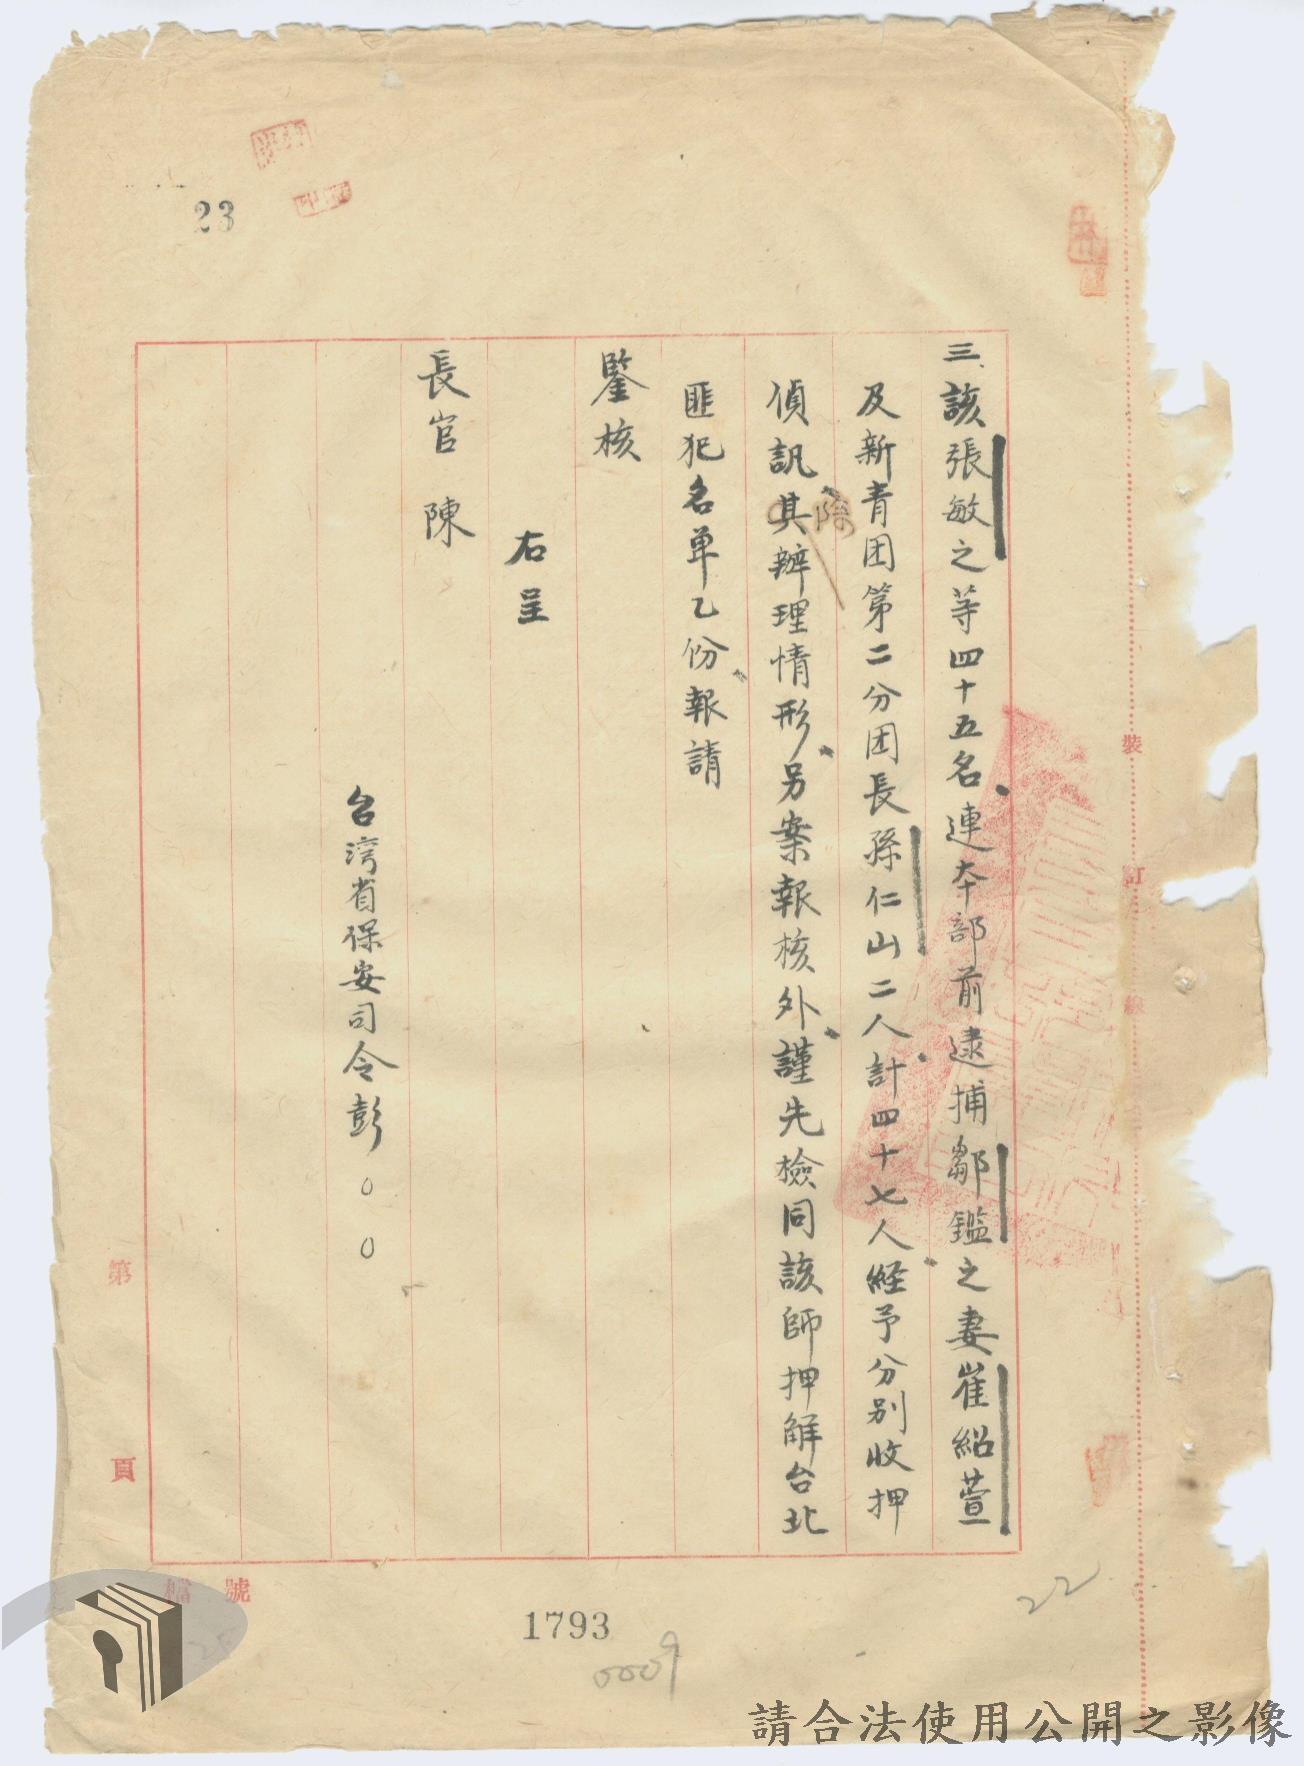 三、該張敏之等四十五名連本部前逮捕鄒鑑之妻崔紹萱
及新青团第二分团長孫仁山二人計四十七人經予分別收押
偵訊除其辦理情形另案報核外謹先檢同該師押解台北
匪犯名單乙份報請
鑒核
右呈
長官陳
台湾省保安司令彭○○
裝
訂
線
第
頁
檔號
23
22
1793
0009
請合法使用公開之影像